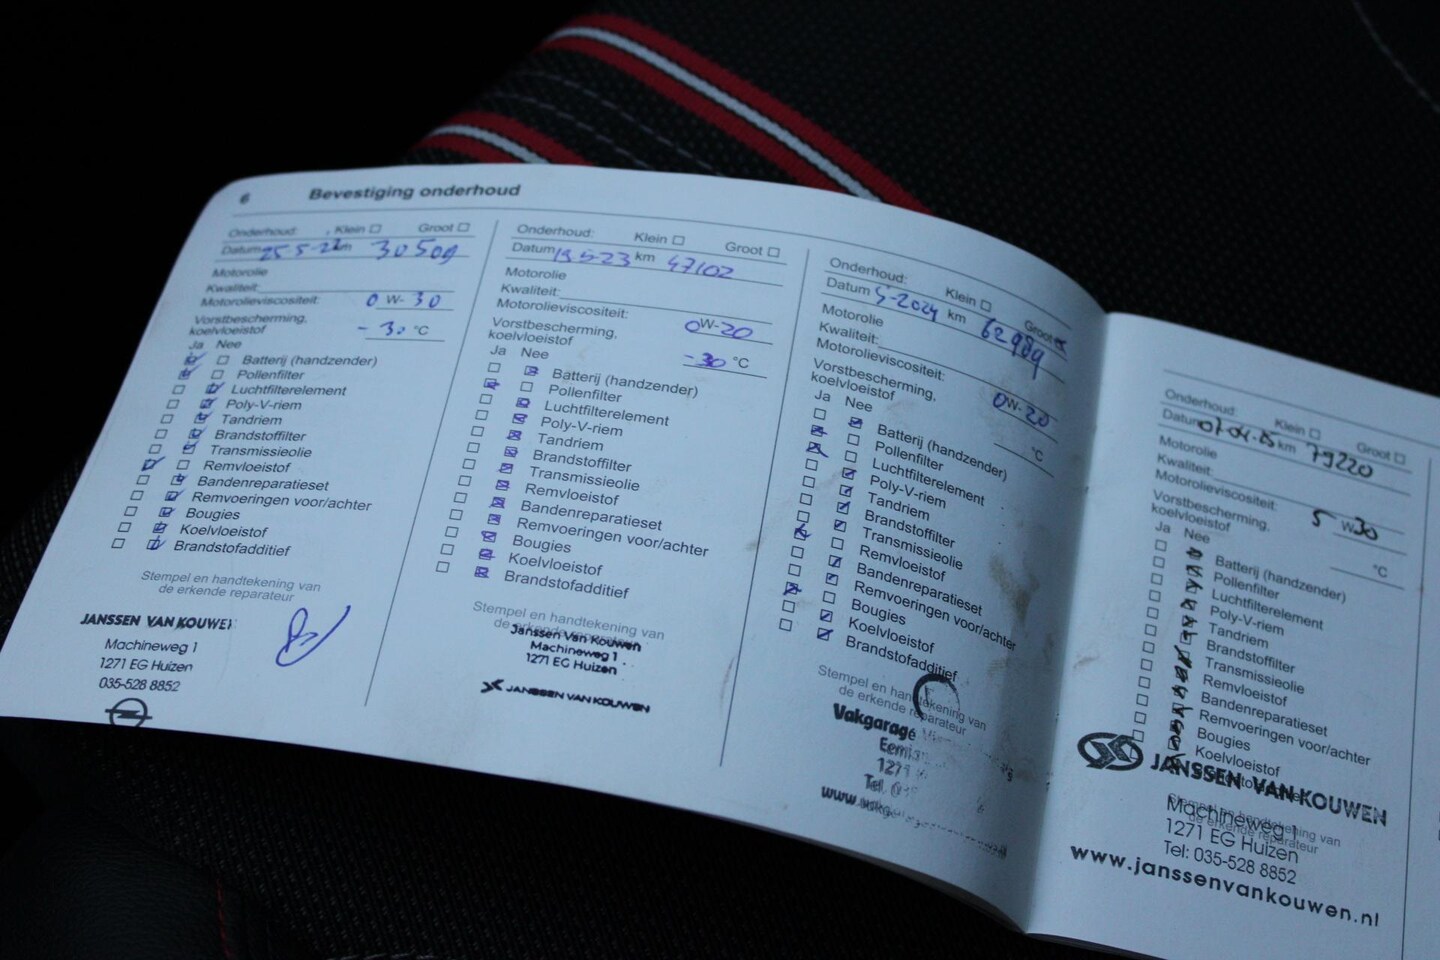 6 Bevestiging onderhoud
Onderhoud: Klein Groot
Datum 25-5-22 km 30509
Motorolie
Kwaliteit:
Motorolieviscositeit: 0 W- 30
Vorstbescherming,
koelvloeistof - 30 °C
Ja Nee
Batterij (handzender)
Pollenfilter
Luchtfilterelement
Poly-V-riem
Tandriem
Brandstoffilter
Transmissieolie
Remvloeistof
Bandenreparatieset
Remvoeringen voor/achter
Bougies
Koelvloeistof
Brandstofadditief
Stempel en handtekening van
de erkende reparateur
JANSSEN VAN KOUWEN
Machineweg 1
1271 EG Huizen
035-528 8852
Onderhoud: Klein Groot
Datum 13-5-23 km 47102
Motorolie
Kwaliteit:
Motorolieviscositeit:
0W-20
Vorstbescherming,
koelvloeistof -30 °C
Ja Nee
Batterij (handzender)
Pollenfilter
Luchtfilterelement
Poly-V-riem
Tandriem
Brandstoffilter
Transmissieolie
Remvloeistof
Bandenreparatieset
Remvoeringen voor/achter
Bougies
Koelvloeistof
Brandstofadditief
Stempel en handtekening van
de erkende reparateur
Janssen Van Kouwen
Machineweg 1
1271 EG Huizen
JANSSEN VAN KOUWEN
Onderhoud: Klein Groot
Datum 5-2024 km 62989
Motorolie
Kwaliteit:
Motorolieviscositeit:
0W-20
Vorstbescherming,
koelvloeistof °C
Ja Nee
Batterij (handzender)
Pollenfilter
Luchtfilterelement
Poly-V-riem
Tandriem
Brandstoffilter
Transmissieolie
Remvloeistof
Bandenreparatieset
Remvoeringen voor/achter
Bougies
Koelvloeistof
Brandstofadditief
Stempel en handtekening van
de erkende reparateur
Vakgarage
1271
Tel.
Onderhoud: Klein Groot
Datum 07-04-25 km 79220
Motorolie
Kwaliteit:
Motorolieviscositeit: 5 W30
Vorstbescherming,
koelvloeistof °C
Ja Nee
Batterij (handzender)
Pollenfilter
Luchtfilterelement
Poly-V-riem
Tandriem
Brandstoffilter
Transmissieolie
Remvloeistof
Bandenreparatieset
Remvoeringen voor/achter
Bougies
Koelvloeistof
Brandstofadditief
Stempel en handtekening van
de erkende reparateur
JANSSEN VAN KOUWEN
Machineweg 1
1271 EG Huizen
Tel: 035-528 8852
www.janssenvankouwen.nl